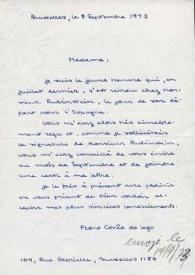 Bruxelles, le 8 Septembre 1973
Madame,
Je suis le jeune homme qui, en
juillet dernier, s'est rendu chez Mon-
sieur Rubinstein, le jour de son dé-
part pour l'Espagne.
Vous m'avez alors très aimable-
ment reçu et, comme je sollicitais
la signature de Monsieur Rubinstein,
vous m'avez conseillé de vous écrire
au mois de Septembre et de joindre
une carte à ma lettre.
Je le fais à présent avec plaisir
en vous priant de bien vouloir ac-
cepter mes plus sincères remerciements.
Pedro Costa de
envoyé le
14/9/73
109, Rue Gabrielle, Bruxelles 1180